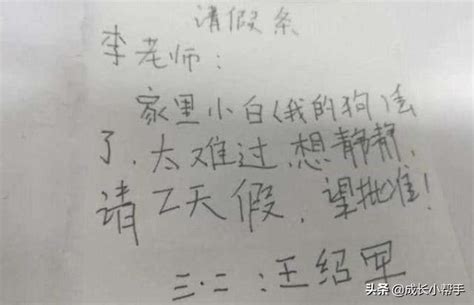 请假条
李老师:
家里小白(我的狗)丢
了,太难过,想静静,
请2天假,望批准!
三·二:王绍军
头条 @成长小帮手